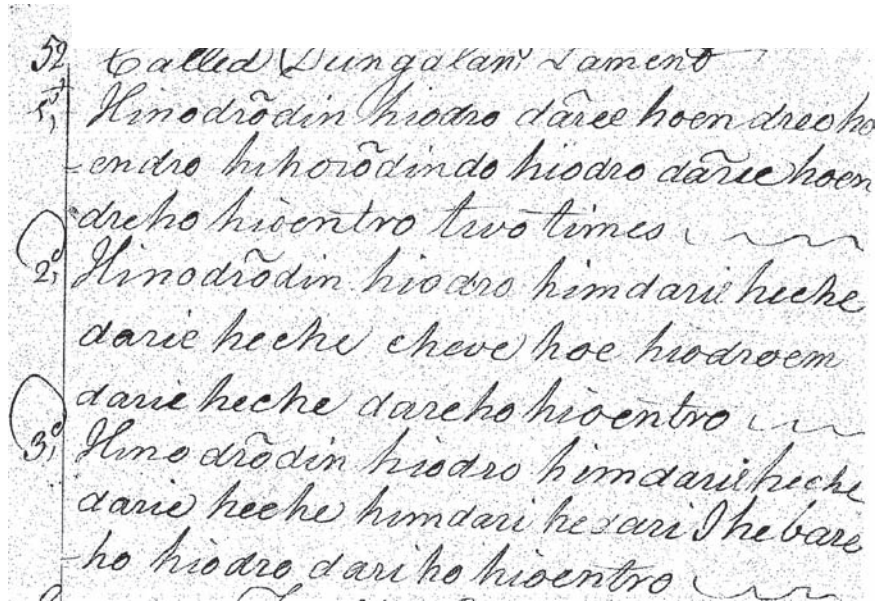 52 Called Dungalans Lament
1st Hinodrõdin hiodro dãree hoen dreo ho
endro hihorõdindo hiodro dãrie hoen
dreho hioentro two times
2d Hinodrõdin hiodro himdarie heche
darie heche cheve hoe hiodroem
darie heche dareho hioentro
3d Hinodrõdin hiodro himdarie heche
darie heche himdari hedari I he bare
ho hiodro dari ho hioentro